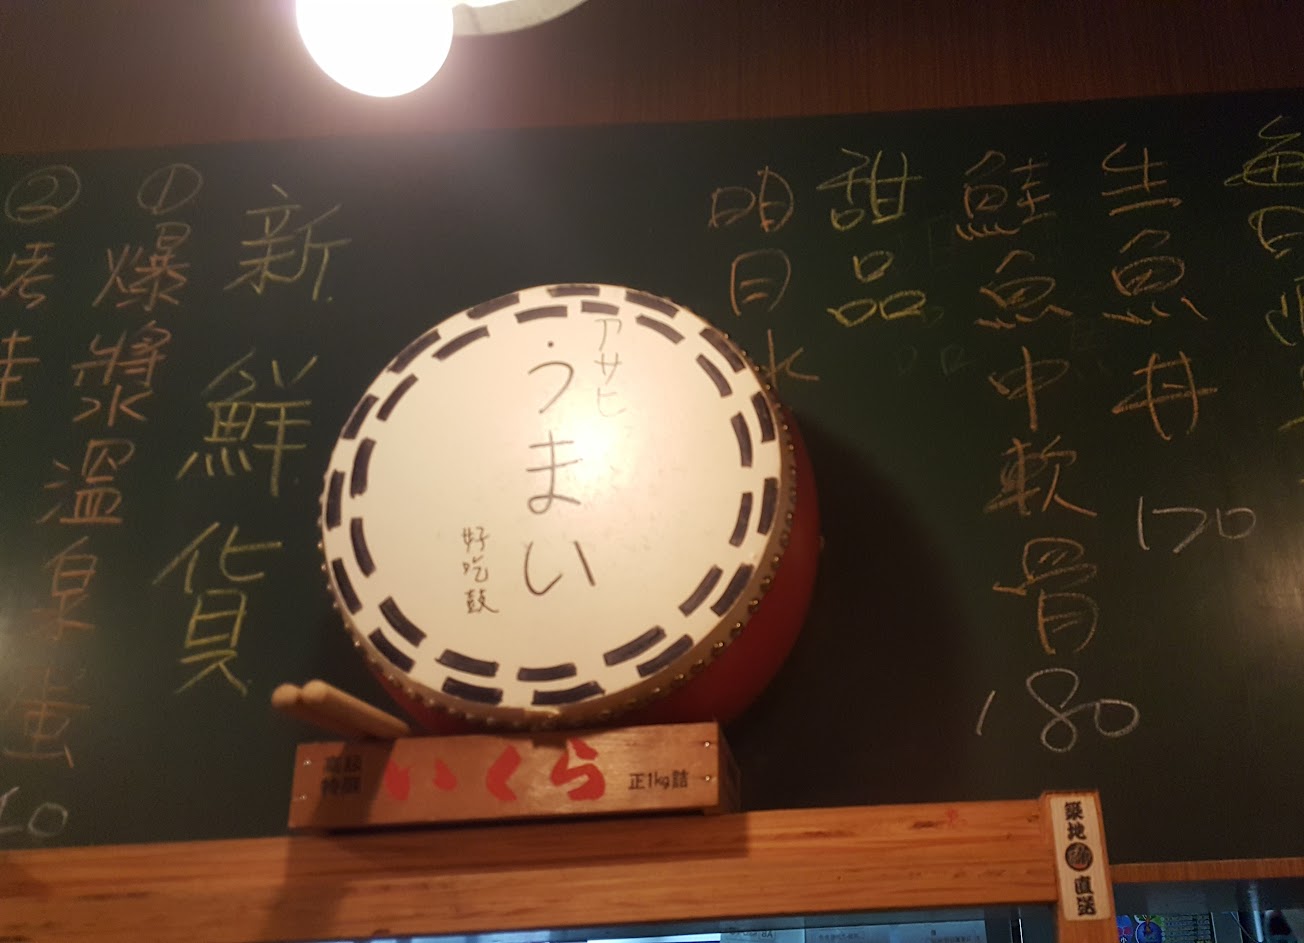 每日
生魚丼
170
鮭魚中軟骨
180
甜品
明日水
新鮮貨
①爆漿溫泉蛋
②烤
アサヒ
うまい
好吃鼓
いくら
正1kg詰
築地
直送